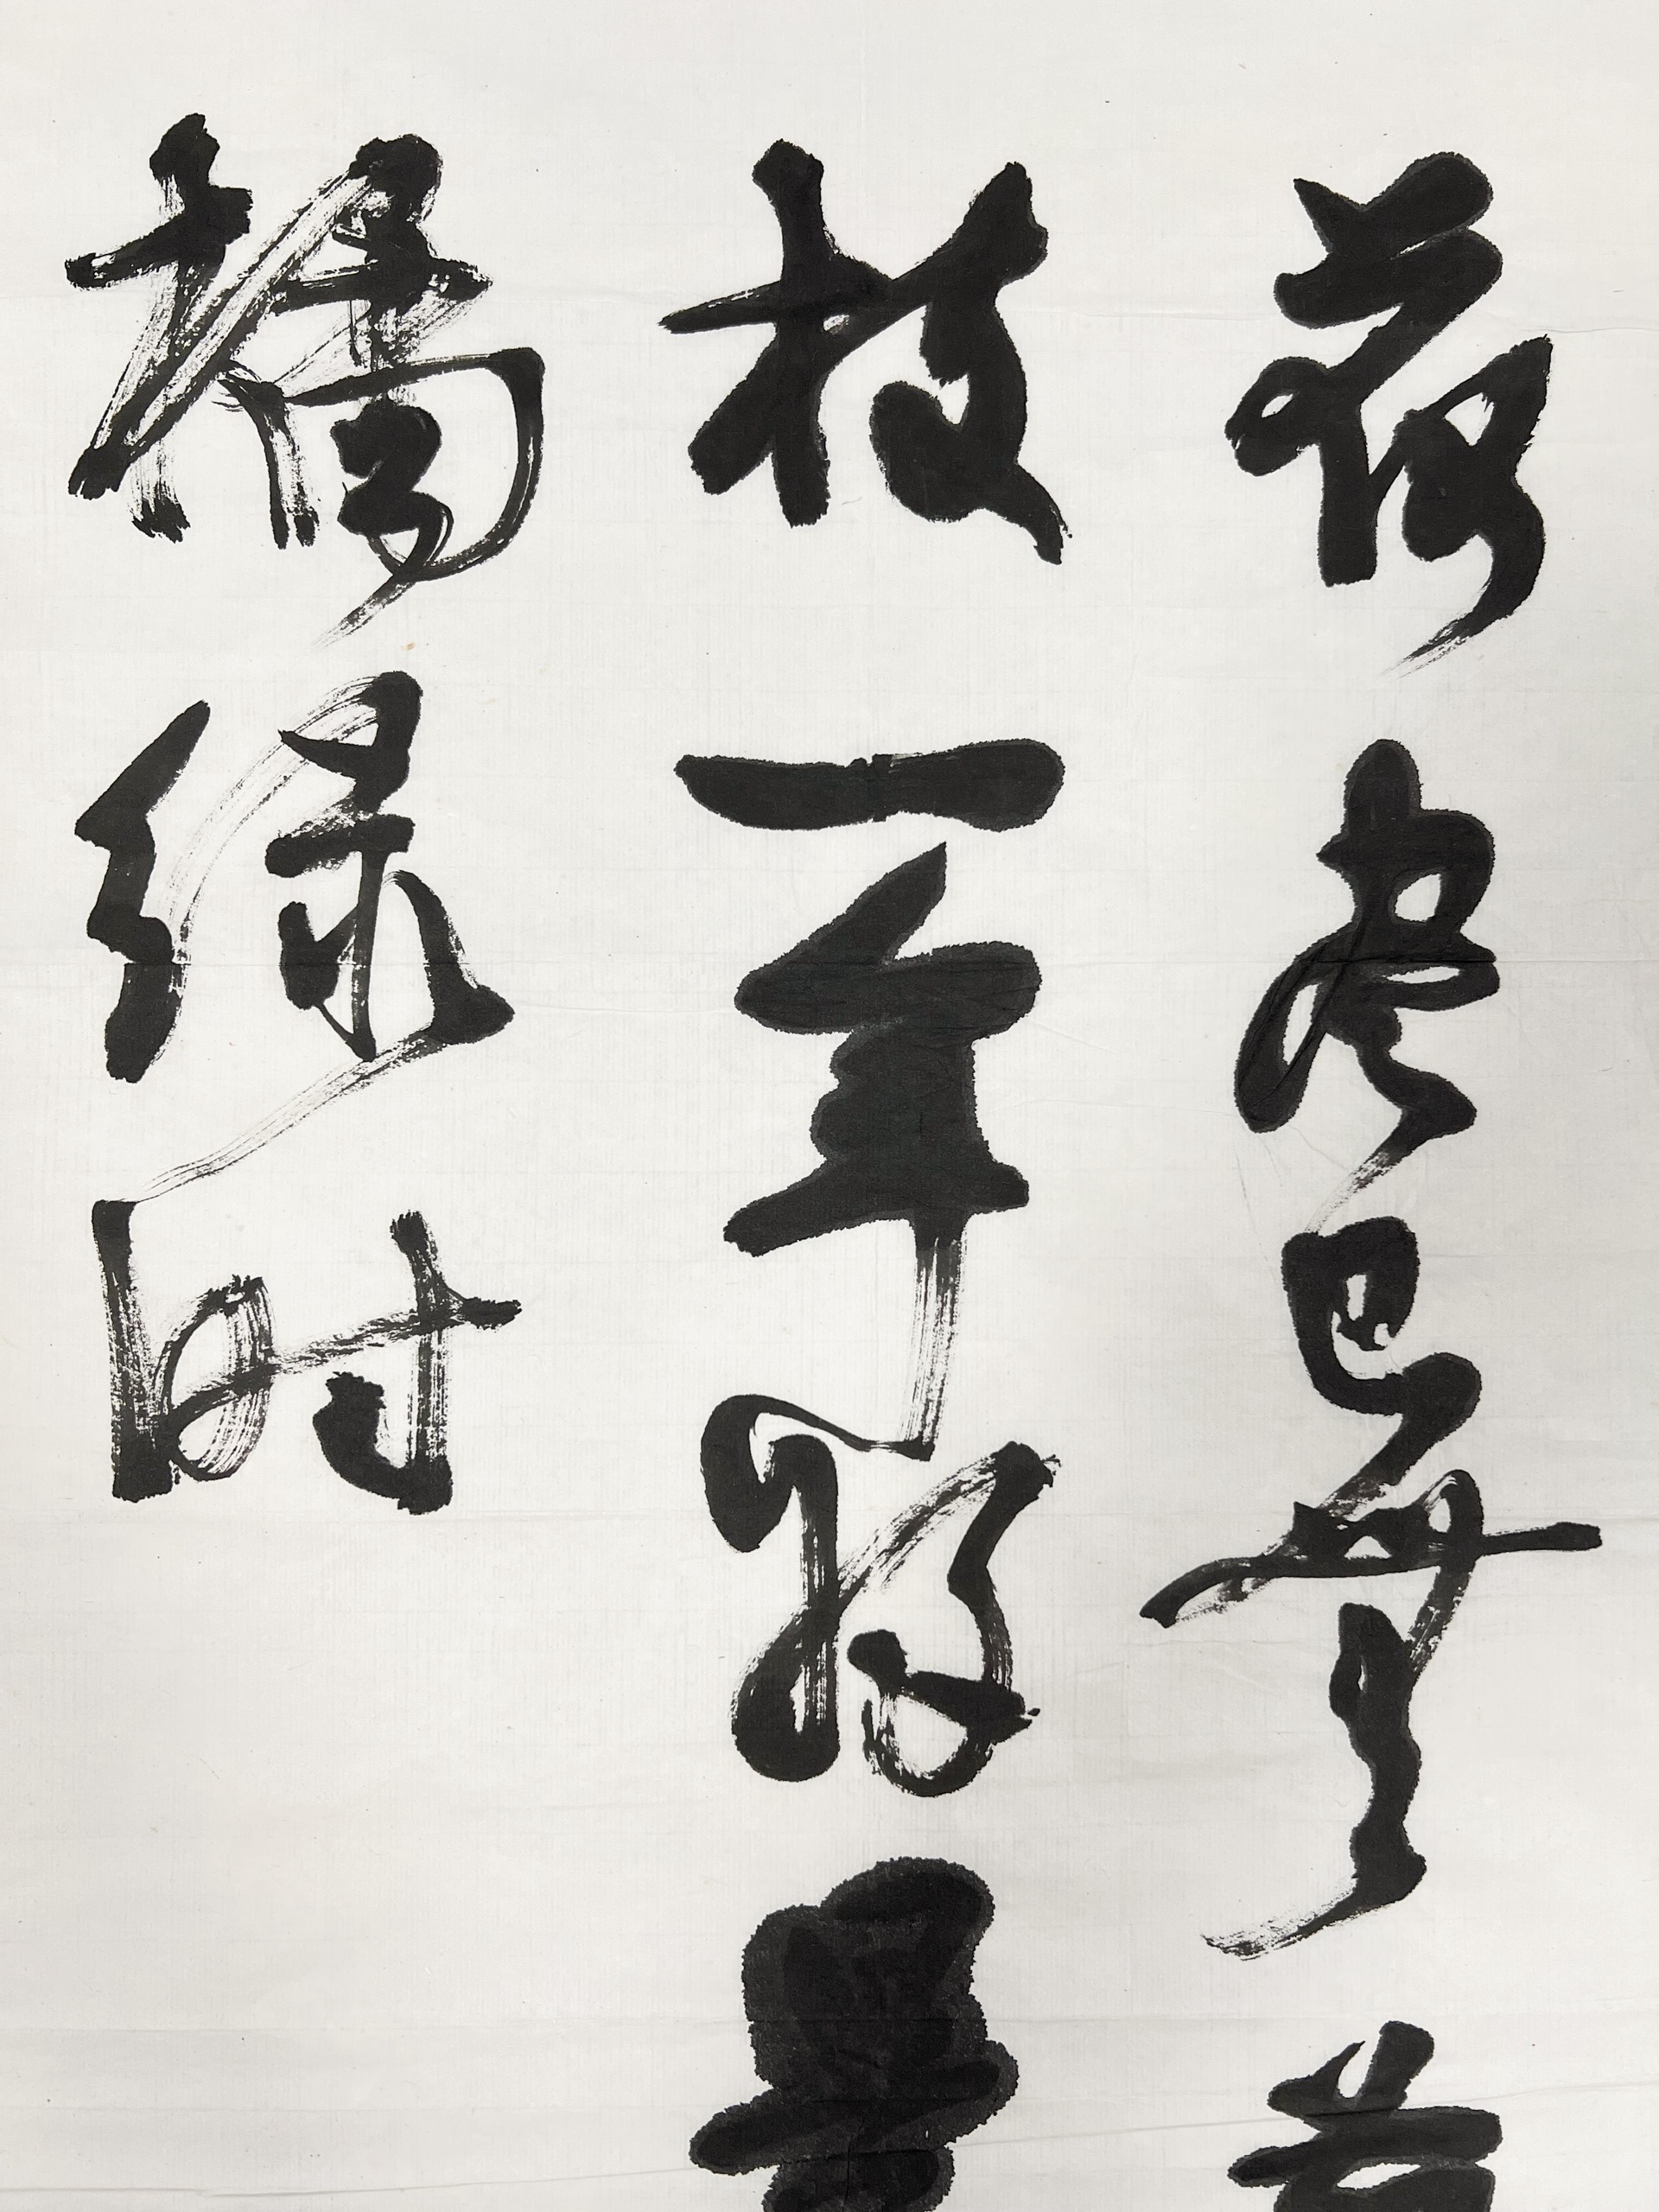 荷尽已無
枝一年好景
橘绿时